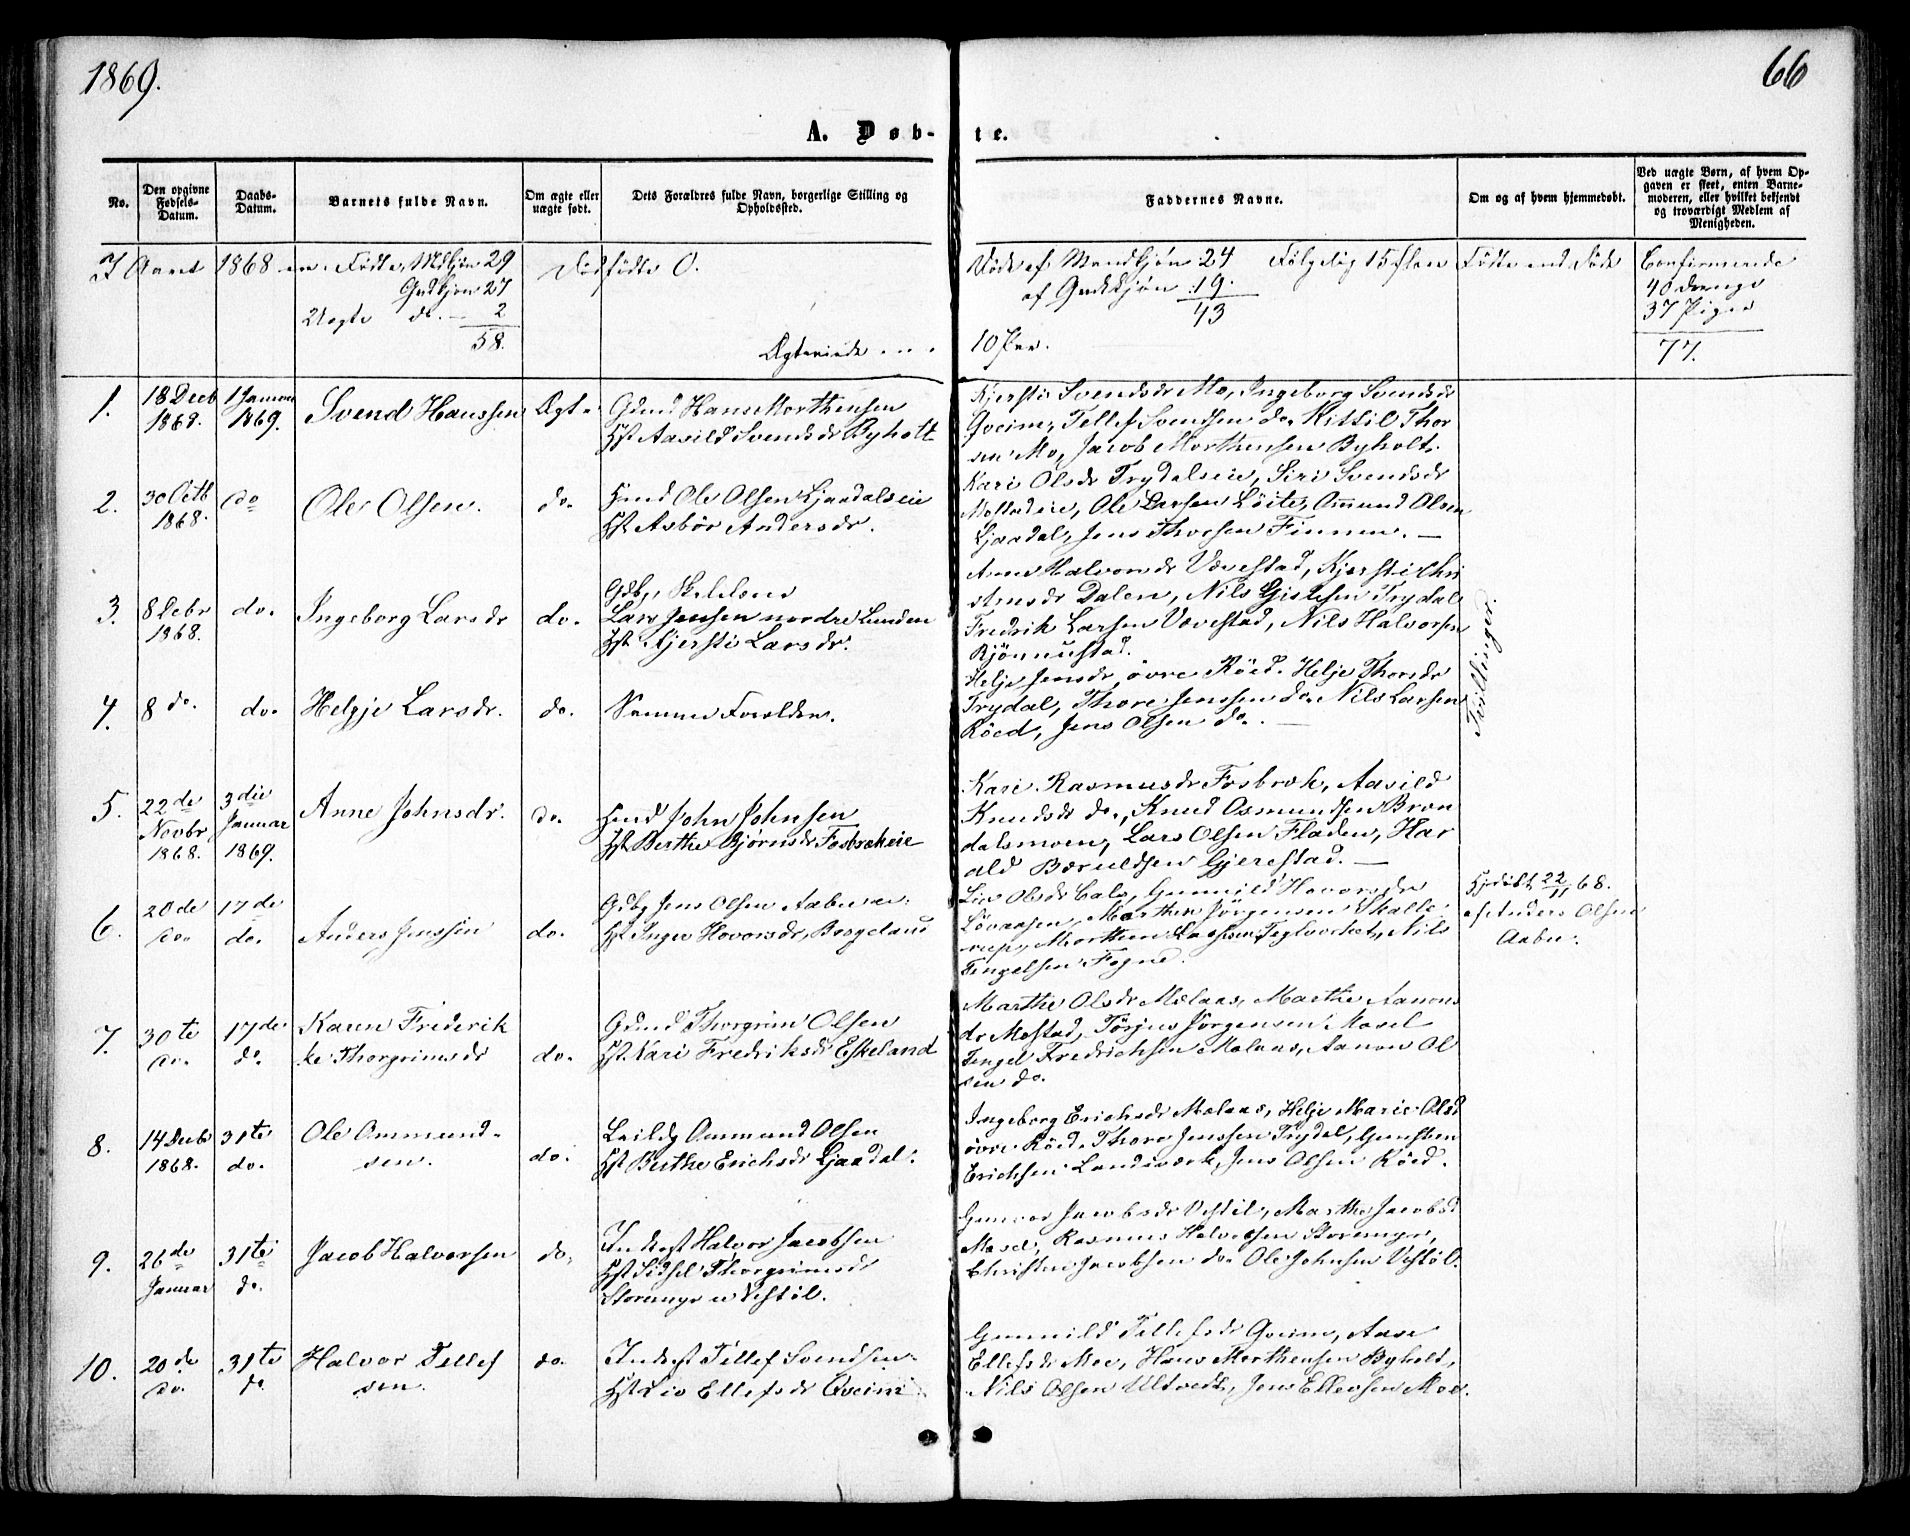 1869.
66
A. Døbte.
No.
Den opgivne Fødsels-Datum.
Daabs-Datum.
Barnets fulde Navn.
Om ægte eller uægte født.
Dets Forældres fulde Navn, borgerlige Stilling og Opholdssted.
Faddernes Navne.
Om og af hvem hjemmedøbt.
Ved uægte Børn, af hvem Opgaven er skeet, enten Barnemoderen, eller hvilket bekjendt og troværdigt Medlem af Menigheden.
I Aaret 1868 ere Fødte, Mdkjøn 29
Qvdkjøn 27
Uægte do. - 2
58.
Dødfødte 0.
Døde af Mandkjøn 24 Følgelig 15 flere Fødte end Døde
af Qvdkjøn 19.
43
Ægteviede .... 10 Par.
Confirmerede
40 Drenge
37 Piger
77.
1.
18 Decb 1868.
1 Januar 1869.
Svend Hanssen
Ægt.
Gdmd Hans Morthensen
Hst Aasild Svendsdr Byholt
Kjersti Svendsdr Mo, Ingeborg Svendsdr
Qveim, Tellef Svendsen do. Kittil Thor
sen Mo, Jacob Morthensen Byholt.
2.
30 Octb 1868.
do
Ole Olsen.
do.
Hmd Ole Olsen Ljaadalseie
Hst Asbør Andersdr.
Kari Olsdr Trydalseie, Siri Svendsdr
Ole Larsen Löite, Ommund Olsen
Ljaadal, Jens Thorsen Finmen.
3.
8 Debr 1868.
do.
Ingeborg Larsdr
do.
Gdbg,
Lars Jensen nordre Lunden
Hst Kjersti Larsdr.
Anne Halvorsdr Vævestad, Kjersti Chri
stensdr Dalen, Nils Gislesen Trydal
Fredrik Larsen Vævestad, Nils Halvorsen
Bjönnustad.
Tvillinger.
4.
8 do.
do.
Helgje Larsdr.
do.
Samme Forældre.
Helje Jensdr, övre Röed. Helje Thorsdr
Trydal, Thore Jenssen do. Nils Larsen
Röed, Jens Olsen do.
5.
22de Novbr 1868.
3die Januar 1869.
Anne Johnsdr.
do.
Hmd John Johnsen
Hst Berthe Bjørnsdr Fosbrækeie
Kari Rasmusdr Fosbræk, Aasild
Knudsdr do., Knud Osmundsen Bron
dalsmoen, Lars Olsen Fladen, Har
ald Bæruldsen Gjerestad.
6.
20de do.
17de do.
Anders Jenssen
do.
Gdbg Jens Olsen Aabu
Hst Inger Hovorsdr,
Liv Olsdr Gunnild Hovorsdr
Lövaasen, Marthen Jörgensen Skalle
rup, Morthen Teglverket, Nils
Tengelsen Fogne.
Hjdöbt 22/11 68.
af Anders Olsen
Aabu.
7.
30te do.
17de do.
Karen Friderik
ke Thorgrimsdr
do.
Gdmd Thorgrim Olsen
Hst Kari Fredriksdr Eskeland
Marthe Olsdr Mælaas, Marthe Aanons
dr Mostad, Törjus Jörgensen Mosel
Tengel Fredrichsen Mælaas, Aanon Ol
sen do.
8.
14 Decbr 1868.
31te do.
Ole Ommund-
sen.
do.
Leildg Ommund Olsen
Hst Berthe Erichsdr Ljaadal.
Ingeborg Erichsdr Mælaas, Helje Marie Olsd
övre Röed. Thore Jenssen Trydal, Gunsten
Erichsen Landsværk, Jens Olsen Röed.
9.
26de Januar
31te do.
Jacob Halvorsen
do.
Inderst Halvor Jacobsen
Hst Sidsel Thorgrimsdr
Storenge u Vestöl.
Gunvor Jacobsdr Vestöl, Marthe Jacobsd
Mosel, Rasmus Halvorsen Storenge,
Christen Jacobsen do. Ole Johnsen Vestöl.
10.
20de do.
31te do.
Halvor Tellef
sen.
do.
Inderst Tellef Svendsen.
Hst Liv Ellefsdr Qveim
Gunnild Tellefsdr Qveim, Aase
Ellefsdr Moe, Hans Morthensen Byholt,
Nils Olsen Ultvedt, Jens Ellevsen Moe.